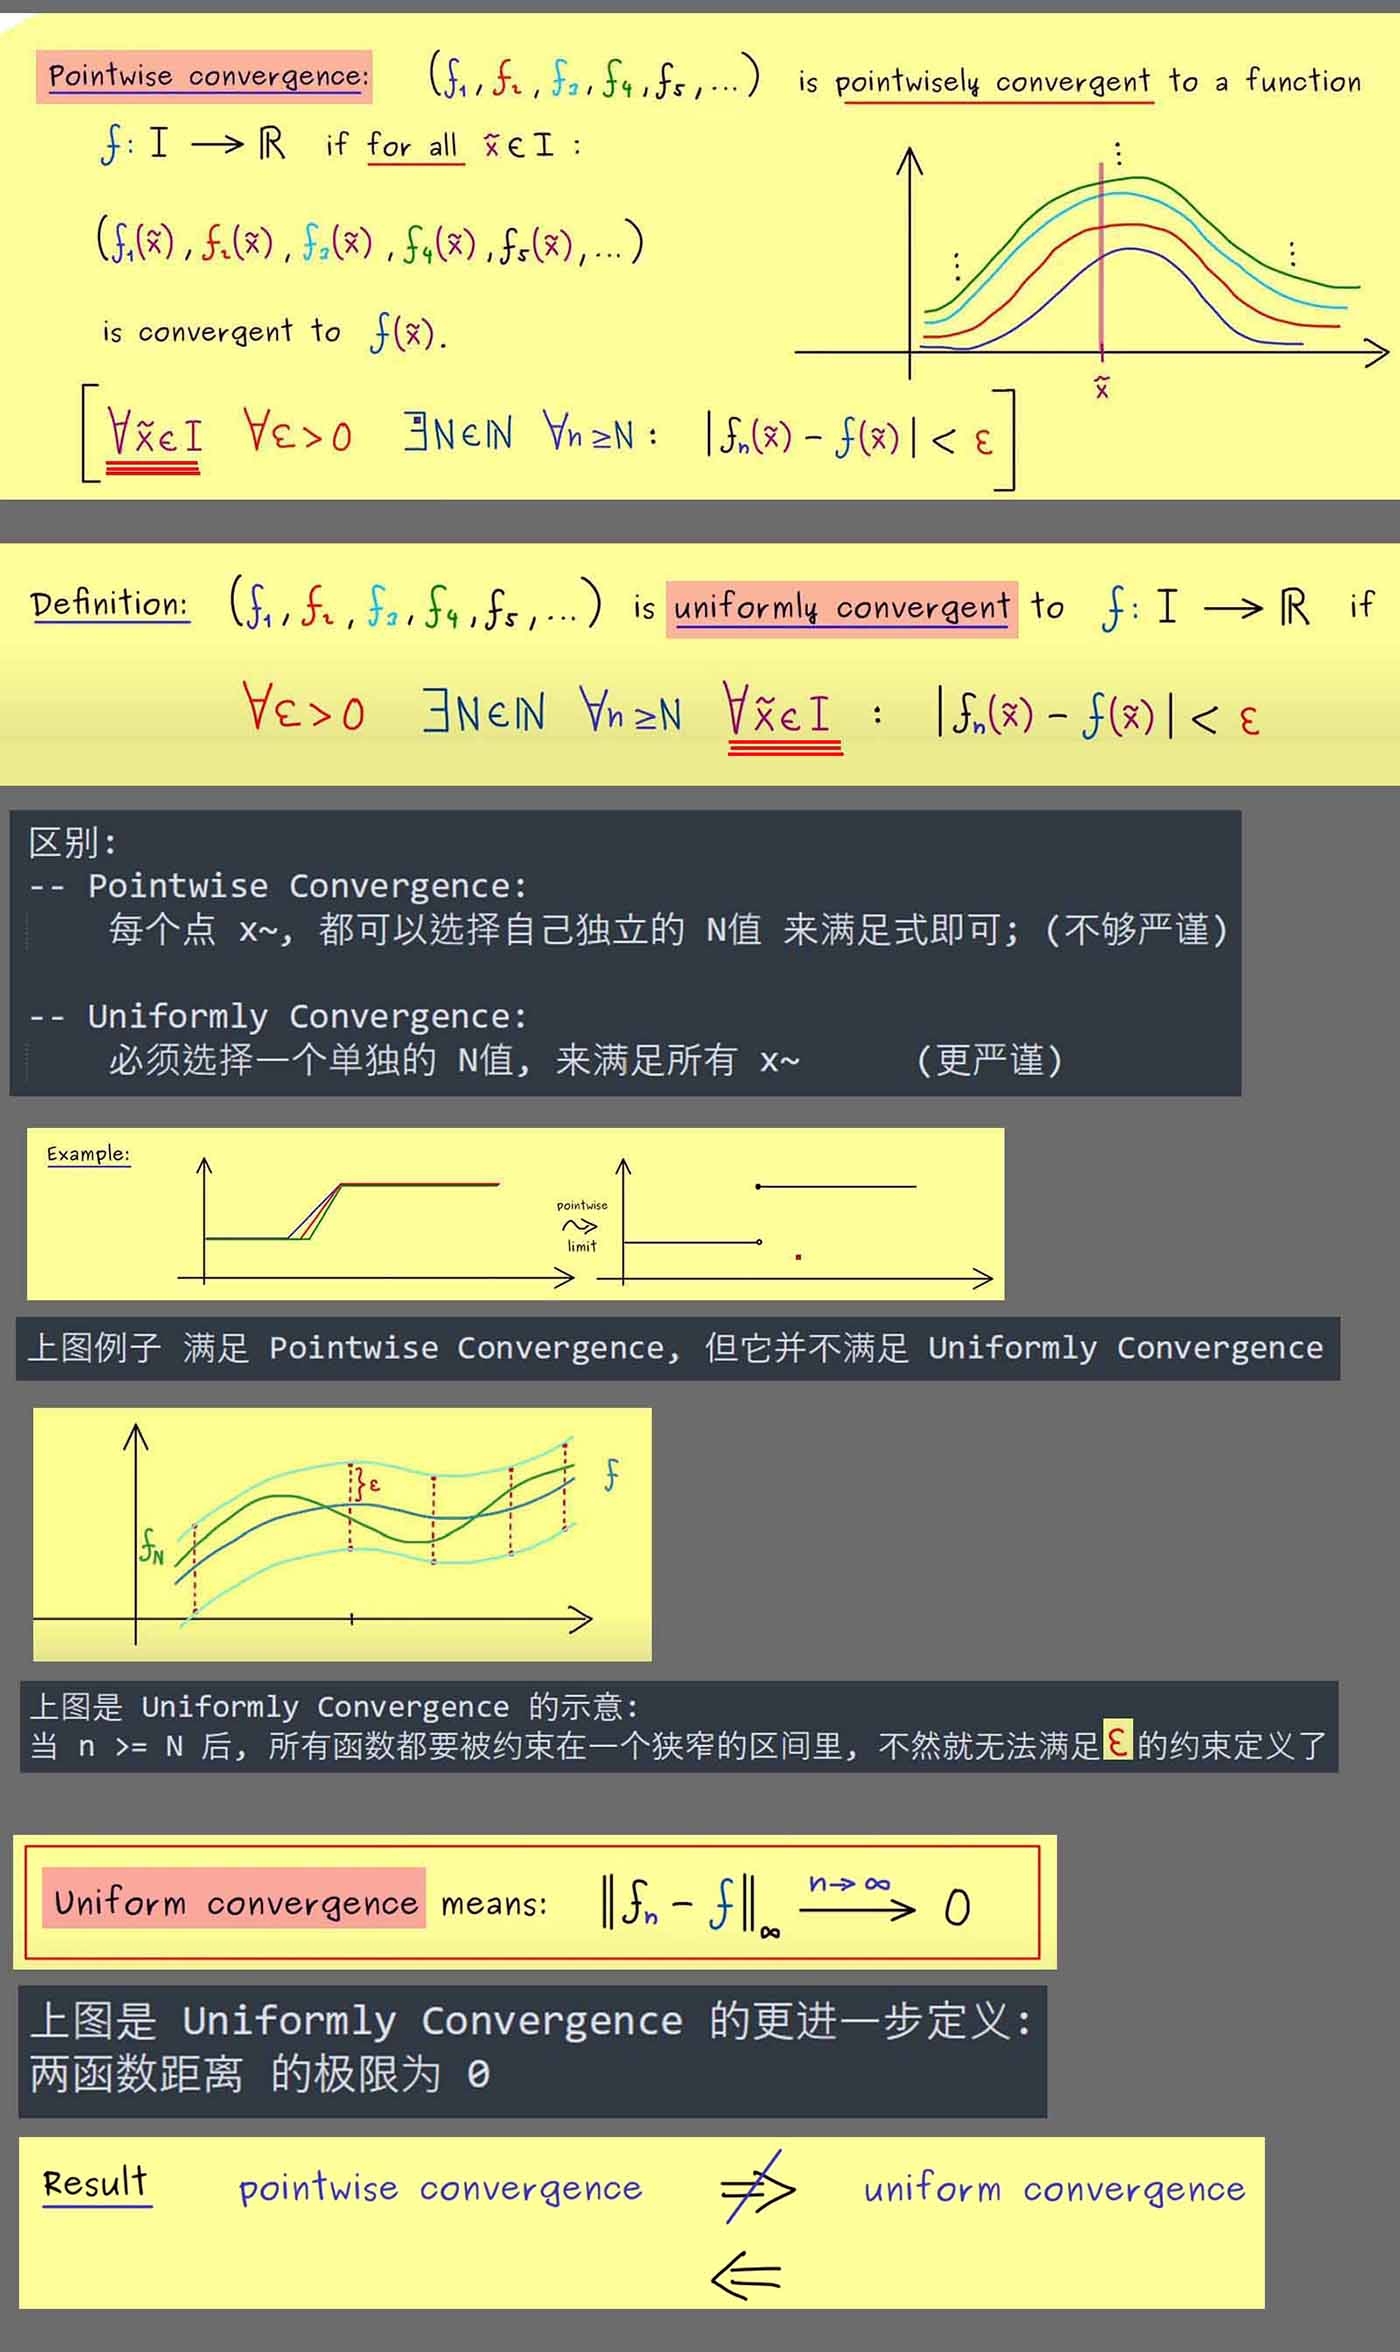 Pointwise convergence: (f₁, f₂, f₃, f₄, f₅, ...) is pointwisely convergent to a function
f: I ⟶ ℝ if for all x̃ ∈ I :
(f₁(x̃), f₂(x̃), f₃(x̃), f₄(x̃), f₅(x̃), ...)
is convergent to f(x̃).
x̃
[∀x̃∈I ∀ε>0 ∃N∈ℕ ∀n≥N : |fₙ(x̃) - f(x̃)| < ε]
Definition: (f₁, f₂, f₃, f₄, f₅, ...) is uniformly convergent to f: I ⟶ ℝ if
∀ε>0 ∃N∈ℕ ∀n≥N ∀x̃∈I : |fₙ(x̃) - f(x̃)| < ε
区别:
-- Pointwise Convergence:
每个点 x~, 都可以选择自己独立的 N值 来满足式即可; (不够严谨)
-- Uniformly Convergence:
必须选择一个单独的 N值, 来满足所有 x~ (更严谨)
Example:
pointwise
limit
上图例子 满足 Pointwise Convergence, 但它并不满足 Uniformly Convergence
}ε
f
f_N
上图是 Uniformly Convergence 的示意:
当 n >= N 后, 所有函数都要被约束在一个狭窄的区间里, 不然就无法满足 ε 的约束定义了
Uniform convergence means: ‖fₙ - f‖∞ ⟶ 0 n→∞
上图是 Uniformly Convergence 的更进一步定义:
两函数距离 的极限为 0
Result pointwise convergence ⇏ uniform convergence
⇐